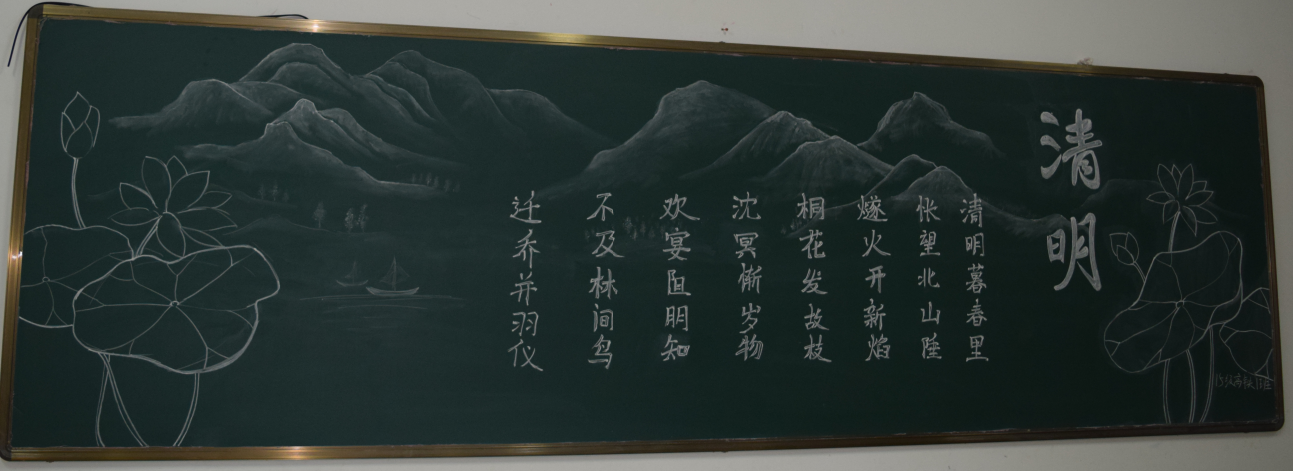 清明
清明暮春里
怅望北山陲
燧火开新焰
桐花发故枝
沈冥惭岁物
欢宴阻朋知
不及林间鸟
迁乔并羽仪